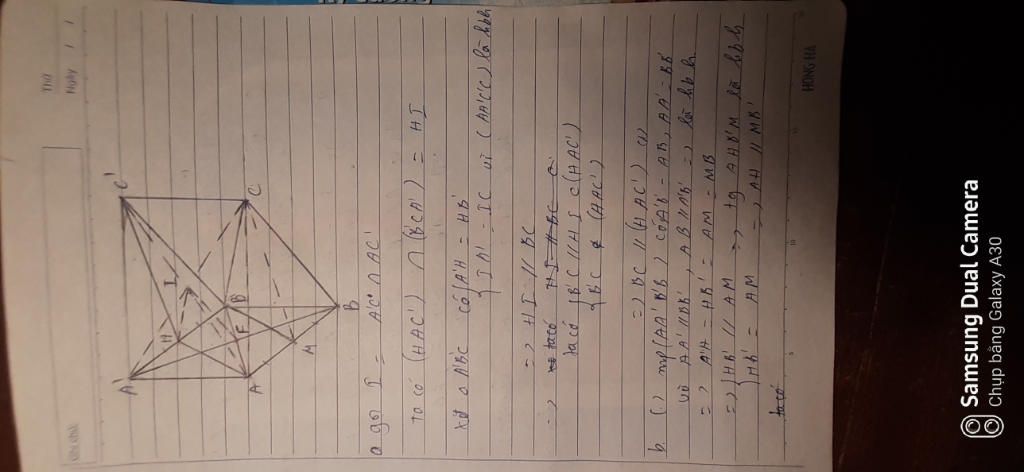 Thứ
Ngày / /
A'
C'
H
I
B'
F
A
M
B
C
a gọi I = A'C ∩ AC'
ta có (HAC') ∩ (B'CA') = HI
xét Δ A'B'C có { A'H = HB'
IA' = IC vì (AA'C'C) là hbh
=> HI // BC
ta có HI // BC
ta có { B'C // HI ⊂ (HAC')
B'C ⊄ (HAC')
=> BC // (HAC') (1)
b. () mp (AA'B'B) có A'B' = AB, AA' = BB'
và AA' // BB', AB // A'B' => là hbh
=> A'H = HB' = AM = MB
=> { HB' // AM => tg AHB'M là hbh
HB' = AM => AH // MB'
ta có
HONG HA
Samsung Dual Camera
Chụp bằng Galaxy A30